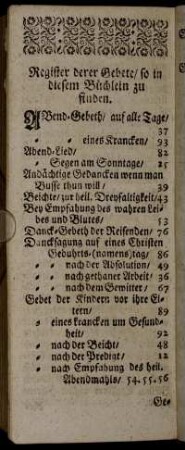 Register derer Gebete/ so in
diesem Büchlein zu
finden.
ABend-Gebeth/ auf alle Tage/
37
„ eines Krancken/ 93
Abend-Lied/ 82
„ Segen am Sonntage/ 25
Andächtige Gedancken wenn man
Busse thun will/ 39
Beichte/ zur heil. Dreyfaltigkeit/ 43
Bey Empfahung des wahren Lei-
bes und Blutes/ 53
Danck-Gebeth der Reisenden/ 76
Dancksagung auf eines Christen
Geburts-(namens)tag/ 86
„ „ nach der Absolution/ 49
„ „ nach gethaner Arbeit/ 36
„ „ nach dem Gewitter/ 67
Gebet der Kinder vor ihre El-
tern/ 89
„ eines krancken um Gesund-
heit/ 92
„ nach der Beicht/ 48
„ nach der Predigt/ 12
„ nach Empfahung des heil.
Abendmahls/ 54. 55. 56
Ge-